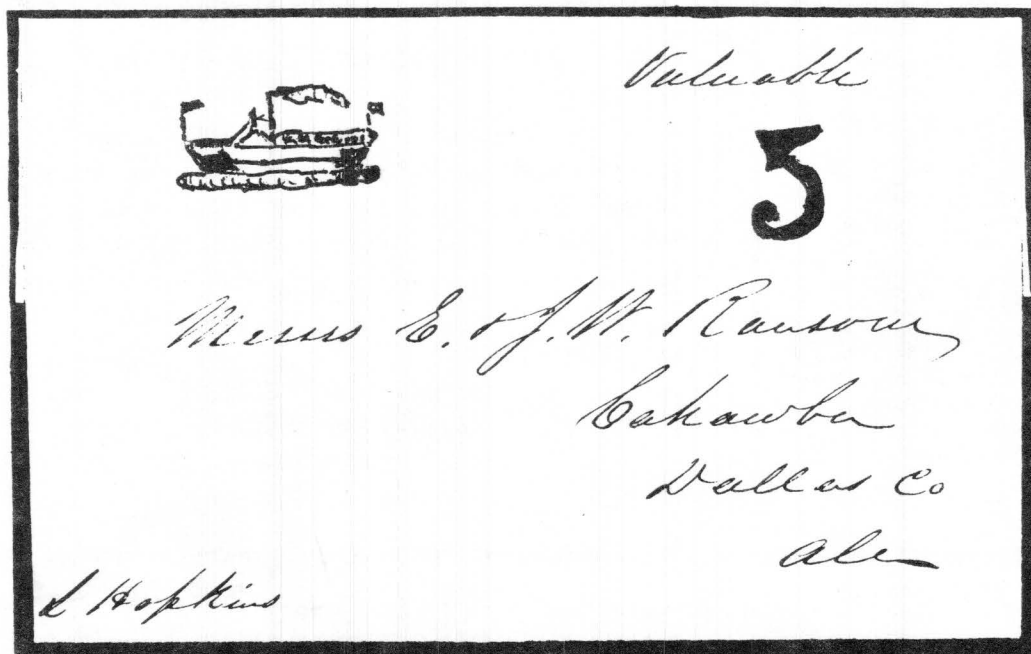 Valuable
5
Messrs E. & J. W. Ransom
Cahawba
Dallas Co
Ala
L Hopkins